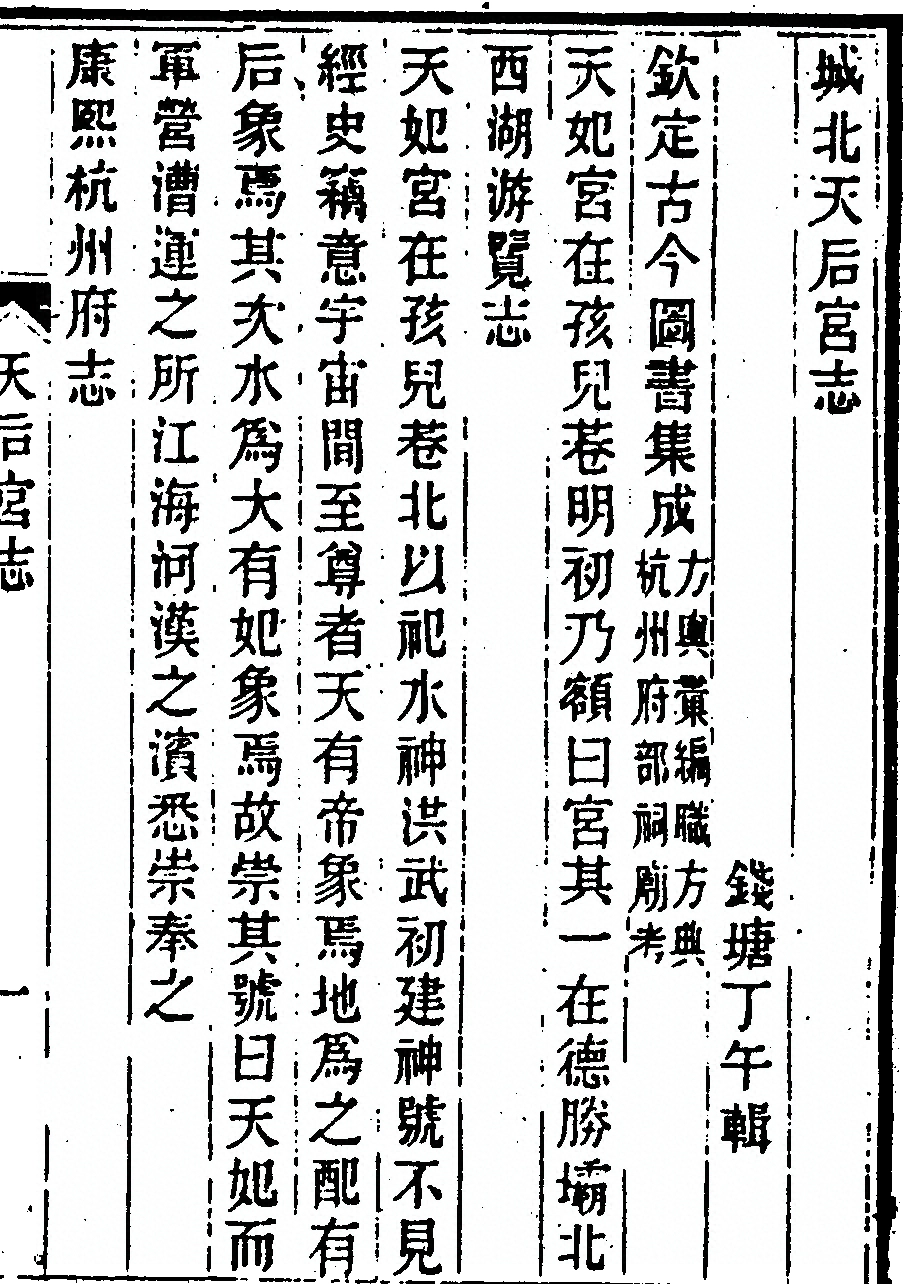 城北天后宮志
錢塘丁午輯
欽定古今圖書集成方輿彙編職方典杭州府部祠廟考
天妃宮在孩兒巷明初乃額曰宮其一在德勝壩北
西湖游覽志
天妃宮在孩兒巷北以祀水神洪武初建神號不見
經史竊意宇宙間至尊者天有帝象焉地爲之配有
后象焉其次水爲大有妃象焉故崇其號曰天妃而
軍營漕運之所江海河漢之濱悉崇奉之
康熙杭州府志
天后宮志
一